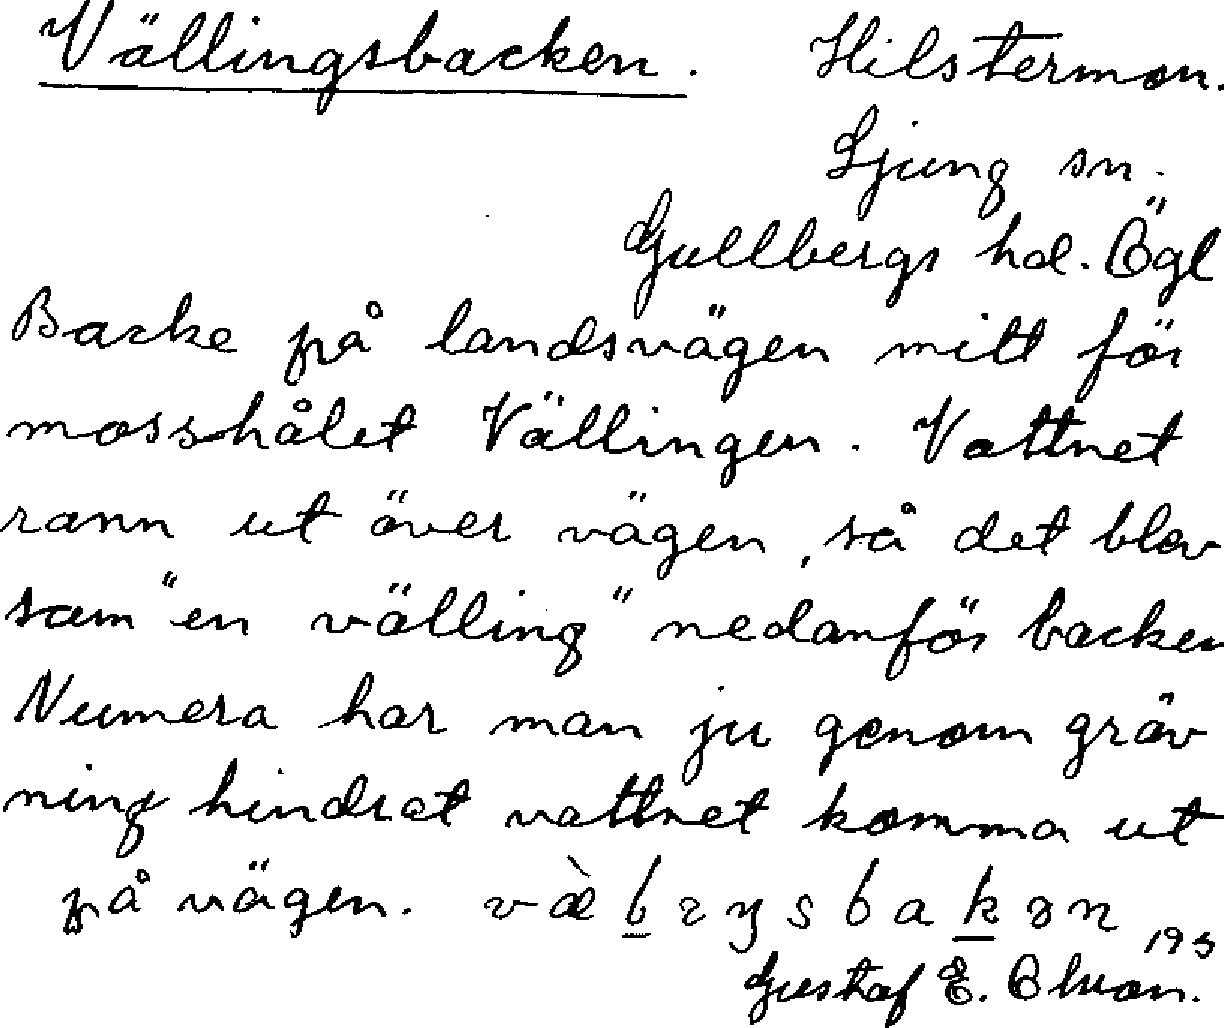 Vällingsbacken. Hilstermon.
Ljung sn.
Gullbergs hd. Ögl
Backe på landsvägen mitt för
mosshålet Vällingen. Vattnet
rann ut över vägen, så det blev
som "en välling" nedanför backen
Numera har man ju genom gräv
ning hindrat vattnet komma ut
på vägen.
193
Gustaf E.